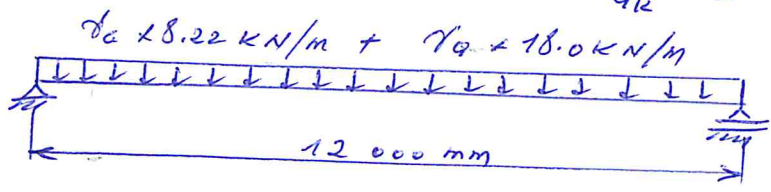 qk
γG × 8.22 KN/m + γQ × 18.0 KN/m
12 000 mm